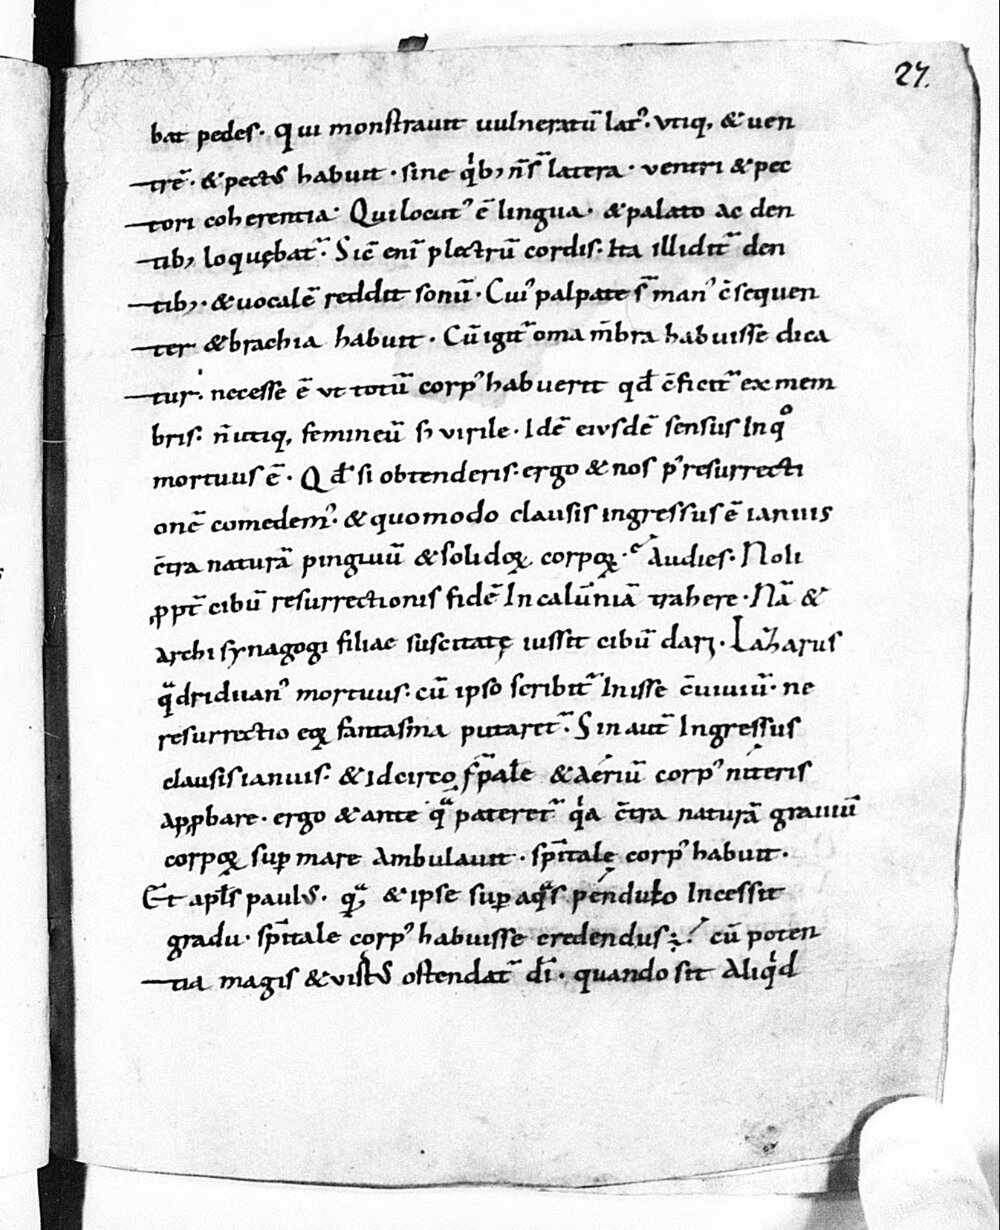 27.
bat pedes. qui monſtrauit uulneratū lat᾽. vtiq, & uen
trē. & pect᾽ habuit. sine qͥb, n̄ sͭ latera. ventri & pec
tori coherentia. Qui locut᾽ ē lingua. & palato ac den
tib, loquębat᷑. Sic̄ eni᷑ plectrū cordis. Ita illidit᷑ den
tib,. & uocalē reddit sonū. Cui᾽ palpate sͭ man᾽ c̄sequen
ter & brachia habuit. Cū igit᷑ om̄a m̄bra habuisse dica
tur. necesse ē vt totū corp᾽ habuerit qđ c̄ficit᷑ ex mem
bris. n̄ utiq, femineū sʒ virile. Idē eivsdē sensus In qͦ
mortuus ē. Qđ si obtenderis. ergo & nos p᾽ resurrecti
onē comedem᾽. & quomodo clausis ingressus ē ianuis
c̄tra naturā pinguiū & solidoꝝ corpoꝝ. Audies. Noli
ꝓpt̄ cibū resurrectionis fidē In calūniā trahere. Nā &
Archi synagogi filiae suscitatę iussit cibū dari. Lazarus
qᷓdriduan᾽ mortuus. cū ipso scribit᷑ Inisse c̄uiuiū. ne
resurrectio eoꝝ fantasma putaret᷑. Sin aut̄ Ingressus
clausis ianuis. & idcirco sp̄ale & Aeriū corp᾽ niteris
Apꝓbare. ergo & ante qᷓ pateret᷑ qͥa c̄tra naturā grauiū
corpoꝝ suꝑ mare Ambulauit. sp̄itale corp᾽ habuit.
Et apl̄s paul᾽. qᷓ & ipse suꝑ aqᷓs pendulo Incessit
gradu. sp̄itale corp᾽ habuisse credendus; cū poten
tia magis & virt᾽ ostendat᷑ dī. quando sit Aliqͥd